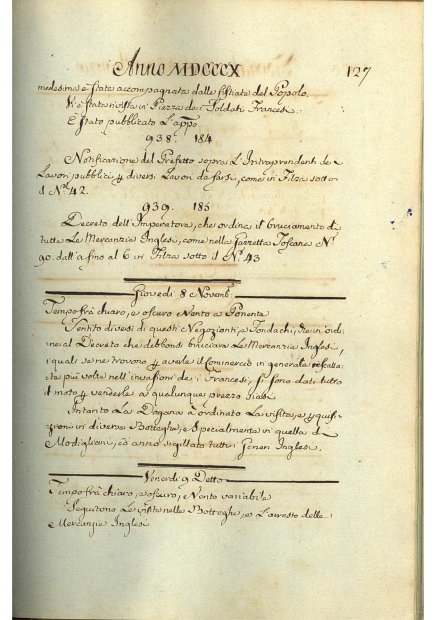 Anno MDCCCX 127
medesima è stata accompagnata dalle fistiate del Popolo.
Vi è stata rivista in Piazza de i Soldati Francesi.
È stato pubblicato L'app.º
938. 184
Notificazione del Prefetto sopra L'Intraprendenti de
Lavori pubblici, diversi Lavori da farsi, come in Filza sotto
il N.º 42.
939. 185
Decreto dell'Imperatore, che ordina il bruciamento di
tutte Le Mercanzie Inglesi, come nella Gazzetta Toscana N.º
90. dall'a fino al 6 in Filza sotto il N.º 43
Giovedì 8 Novemb.
Tempo frà chiaro, e oscuro Vento a Ponente
Sentito diversi di questi Negozianti, e Fondachi, che in ordi-
ne al Decreto che debbonsi bruciare Le Mercanzie Inglesi,
i quali se ne trovono averle il Commercio in generale
più volte nell'invasioni de i Francesi, si sono dati tutto
il moto venderle a qualunque prezzo
Intanto La Dogana à ordinato La visita, e
zioni in diverse Botteghe, e specialmente in quella di
Modigliani, ed anno sigillato tutti i Generi Inglesi.
Venerdì 9 Detto
Tempo frà chiaro, e oscuro, Vento variabile
Seguitono Le visite nelle Botteghe, e L'arresto delle
Mercanzie Inglesi